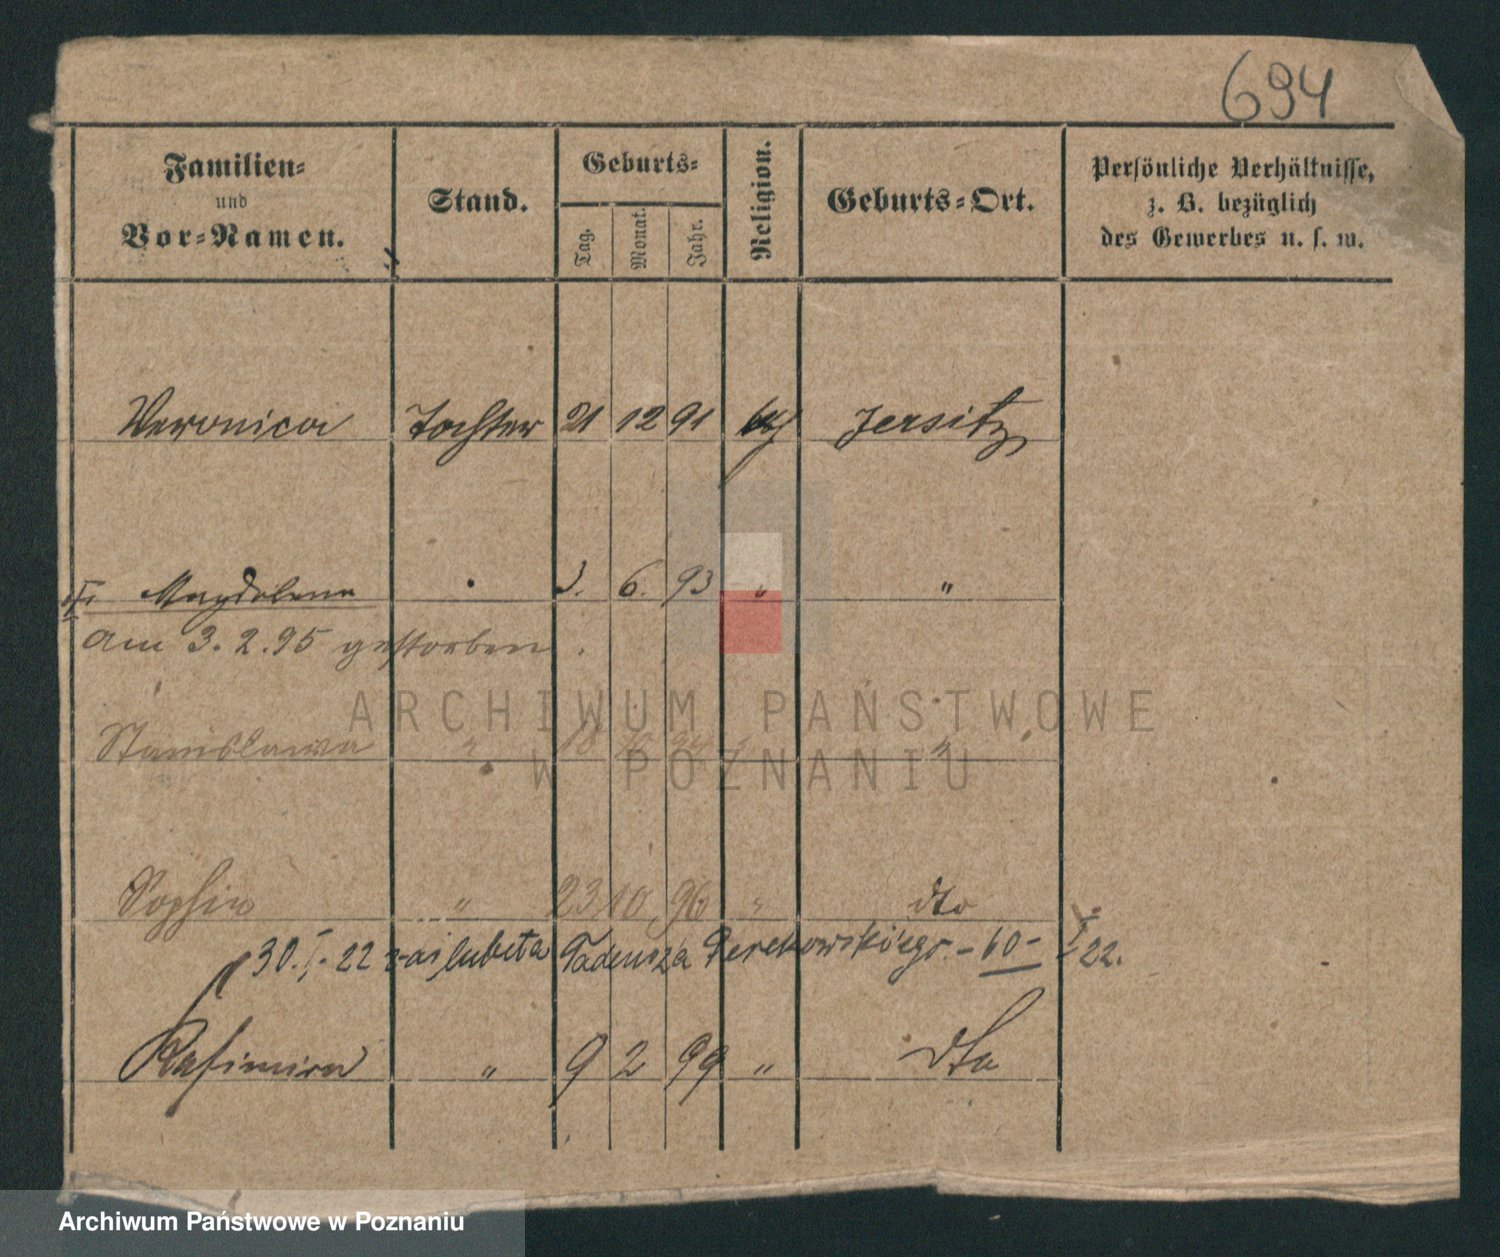 694
Familien-
und
Vor-Namen.
Stand.
Geburts-
Tag.
Monat.
Jahr.
Religion.
Geburts-Ort.
Persönliche Verhältnisse,
z. B. bezüglich
des Gewerbes u. s. w.
Veronica Tochter 21 12 91 Jersitz
Magdalena 3. 6. 93 " "
am 3. 2. 95 gestorben.
Stanislawa " 18 "
Sophia " 23 10 96 " dto
30. I. 22 zaślubiła Tadeusza - 60 - I 22.
Kasimira " 9 2 99 " dto
ARCHIWUM PAŃSTWOWE
W POZNANIU
Archiwum Państwowe w Poznaniu